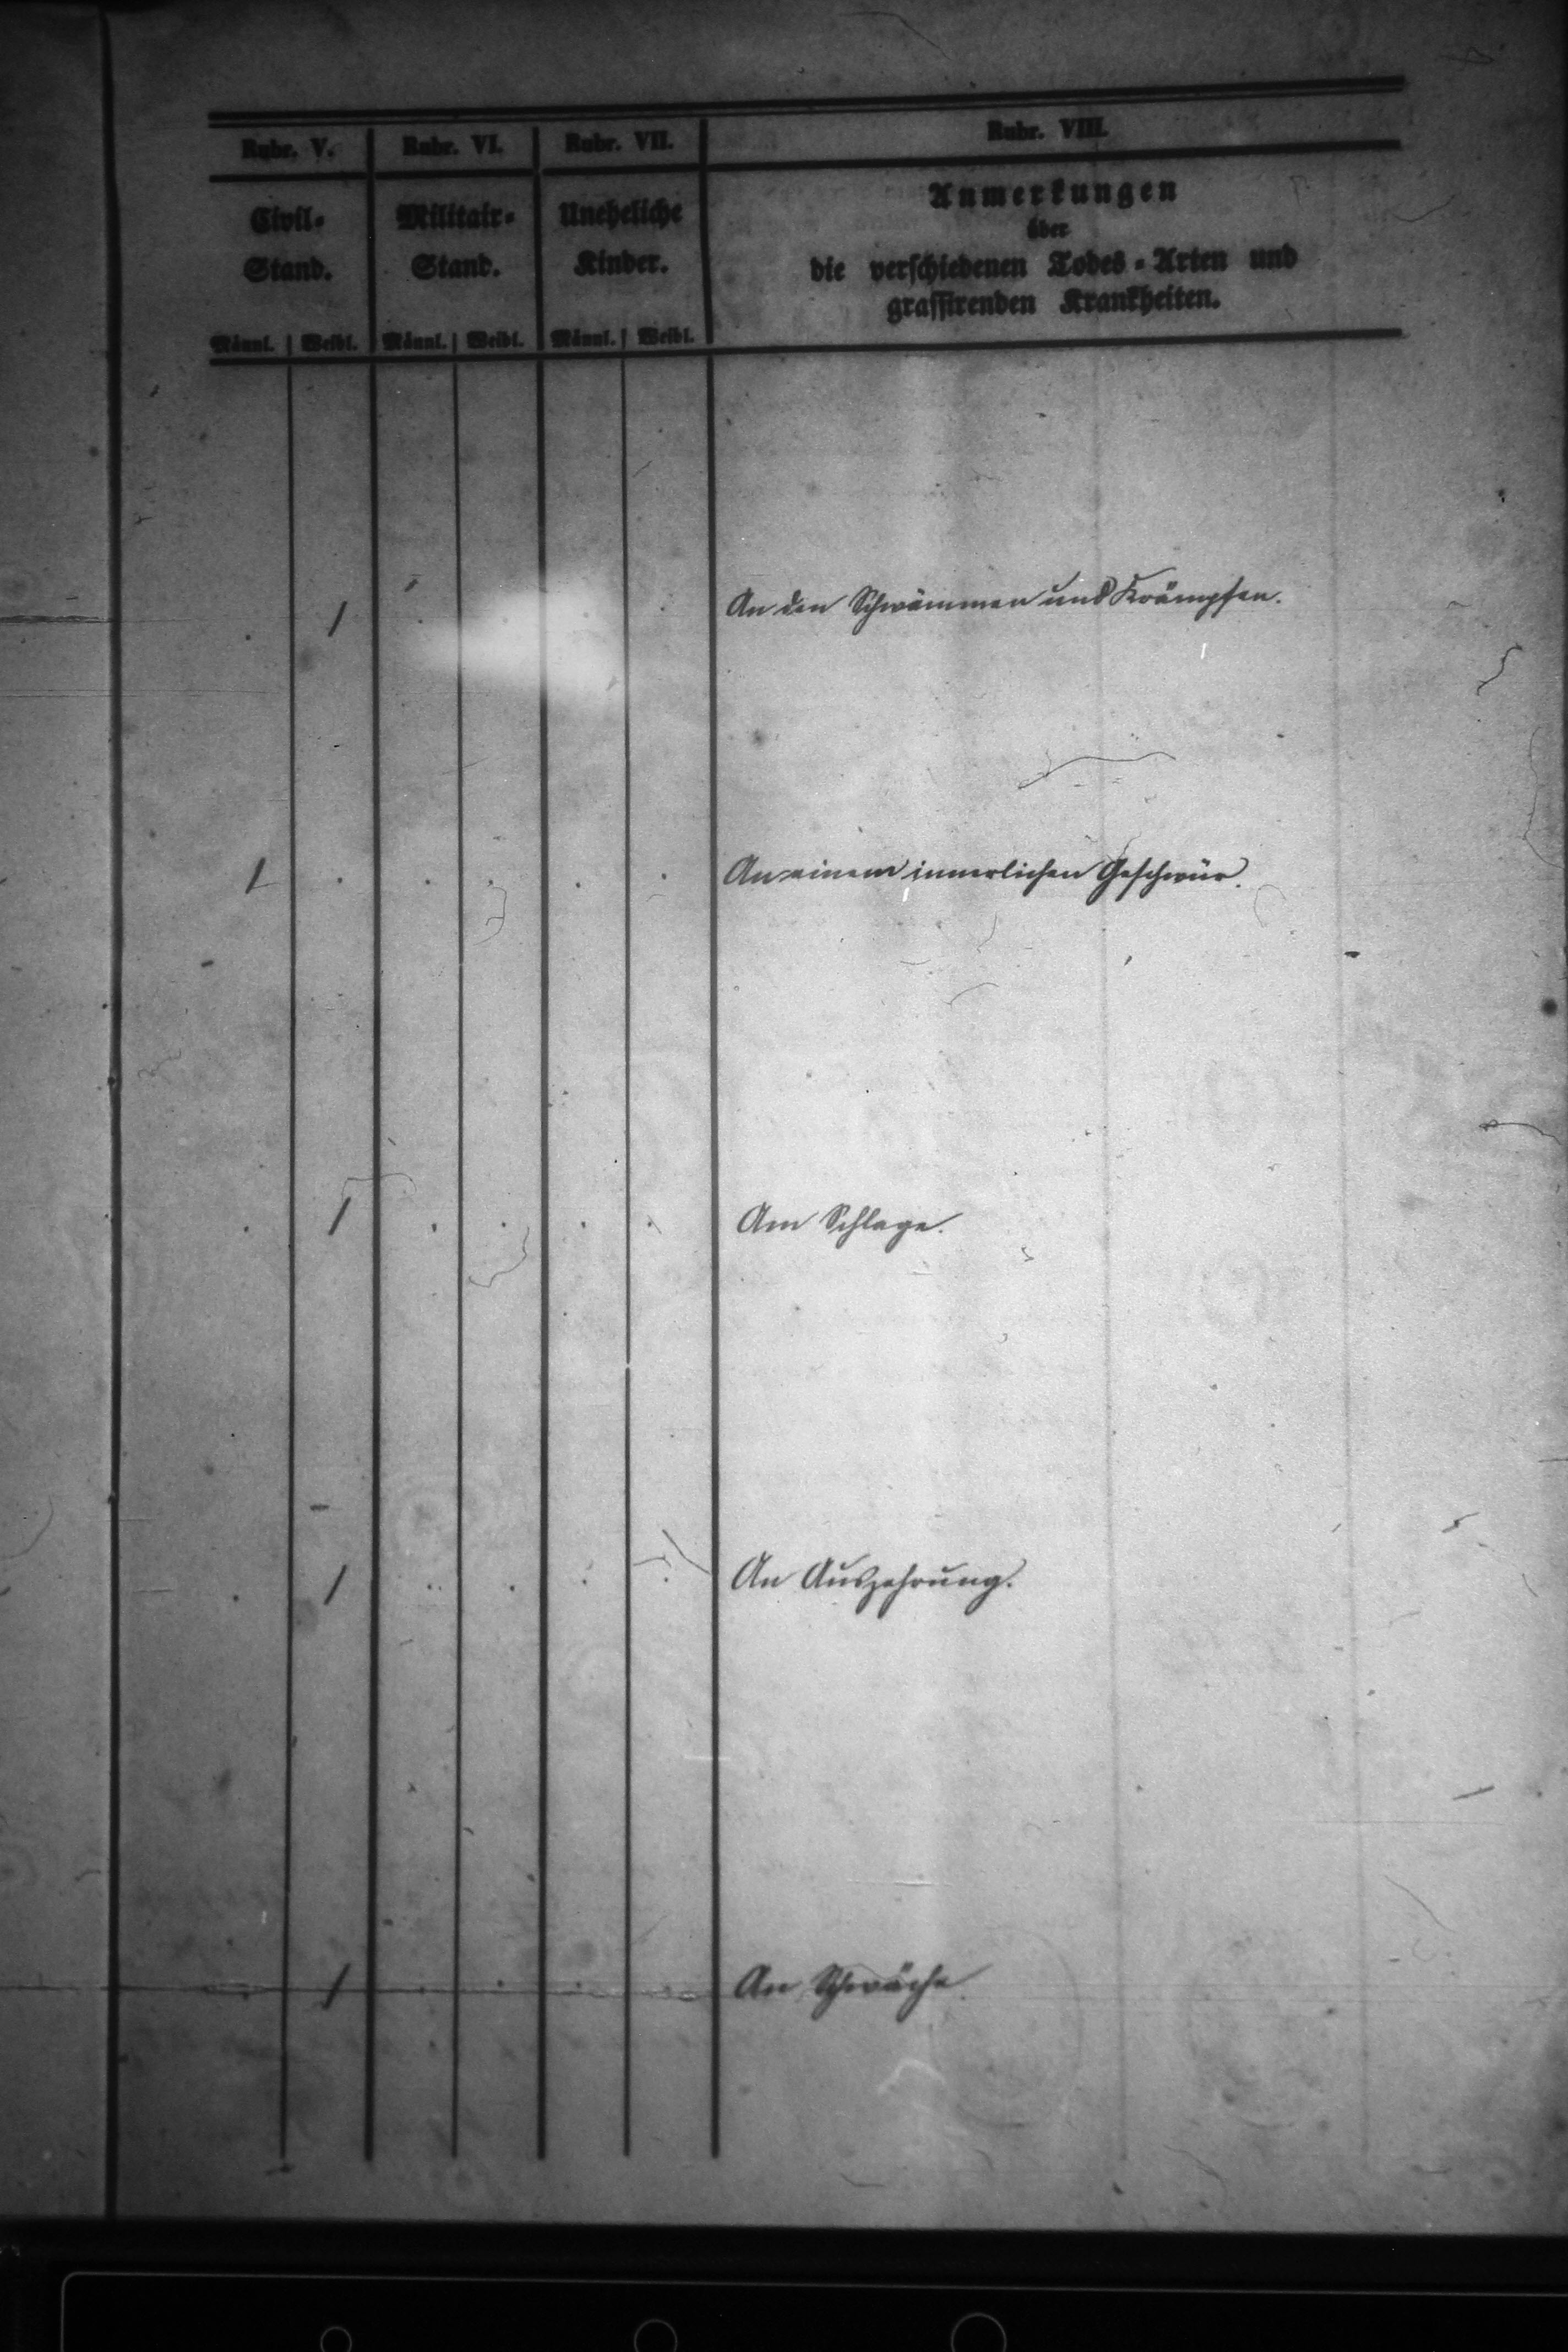 Rubr. V. Rubr. VI. Rubr. VII. Rubr. VIII.
Civil= Militair= Uneheliche Anmerkungen
Stand. Stand. Kinder. über
die verschiedenen Todes=Arten und
grassirenden Krankheiten.
Männl. Weibl. Männl. Weibl. Männl. Weibl.
. 1 An den Schwämmen und Krämpfen.
1 . . . . . An einem innerlichen Geschwür.
. 1 . . . . Am Schlage.
. 1 . . . . An Auszehrung.
. 1 . . . . An Schwäche.